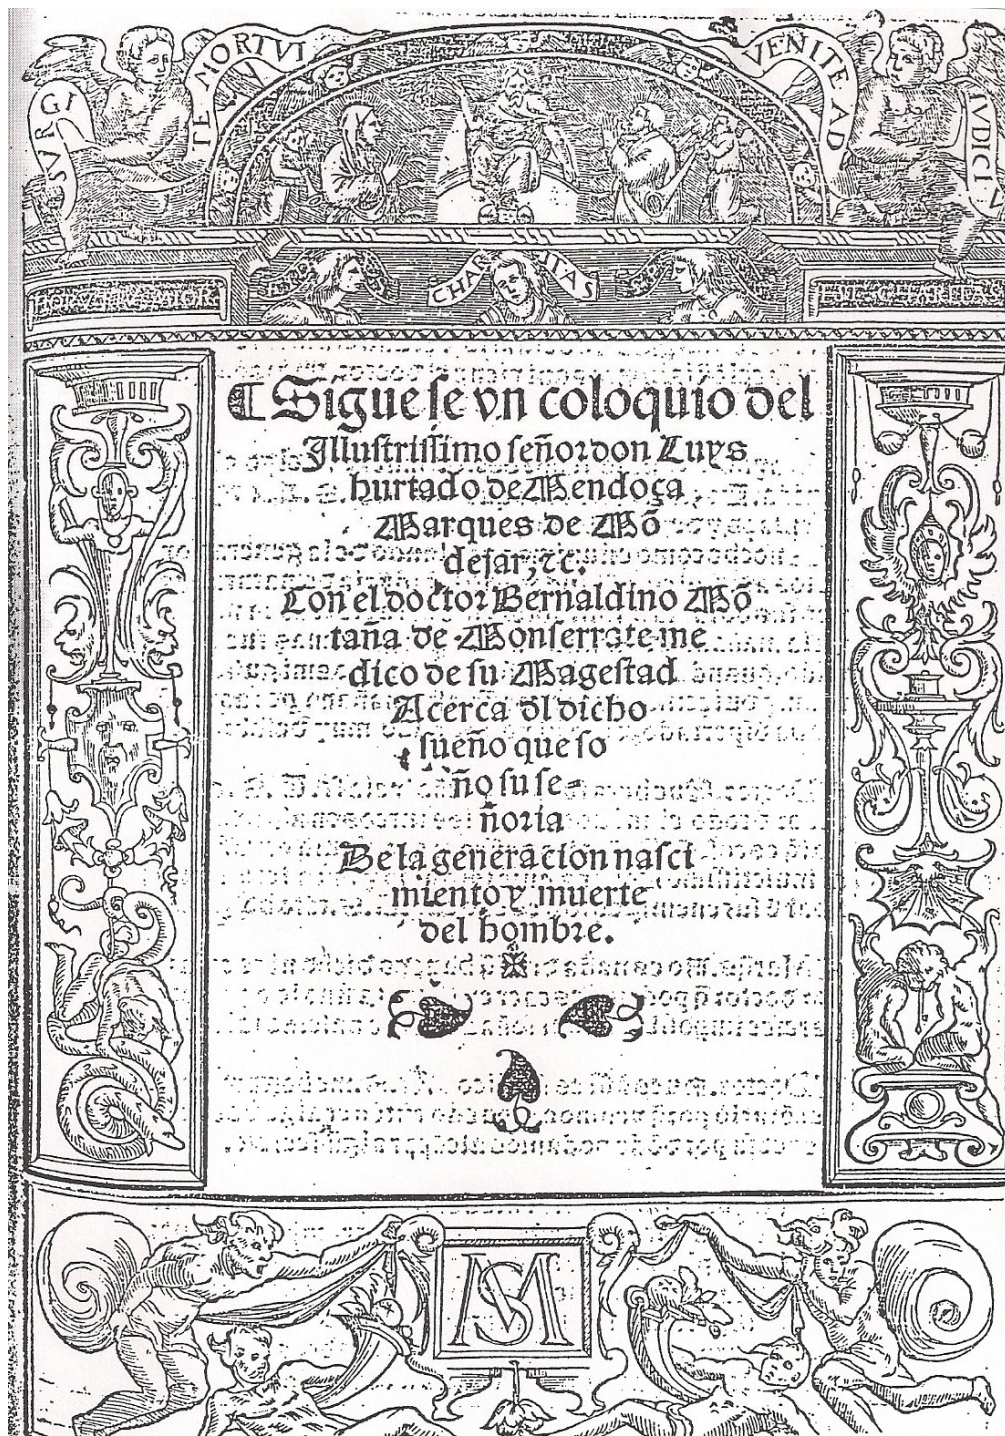 SURGI
TE MORTVI
VENITE AD
IVDICI
CHARITAS
¶ Siguese vn coloquio del
Illustrissimo señor don Luys
hurtado de Mendoça
Marques de Mõ
dejar, ⁊c.
Con el doctor Bernaldino Mõ
taña de Monserrate me
dico de su Magestad
Acerca d̃l dicho
sueño que so
ño su se-
ñoria
De la generacion nasci
miento y muerte
del hombre.
MS